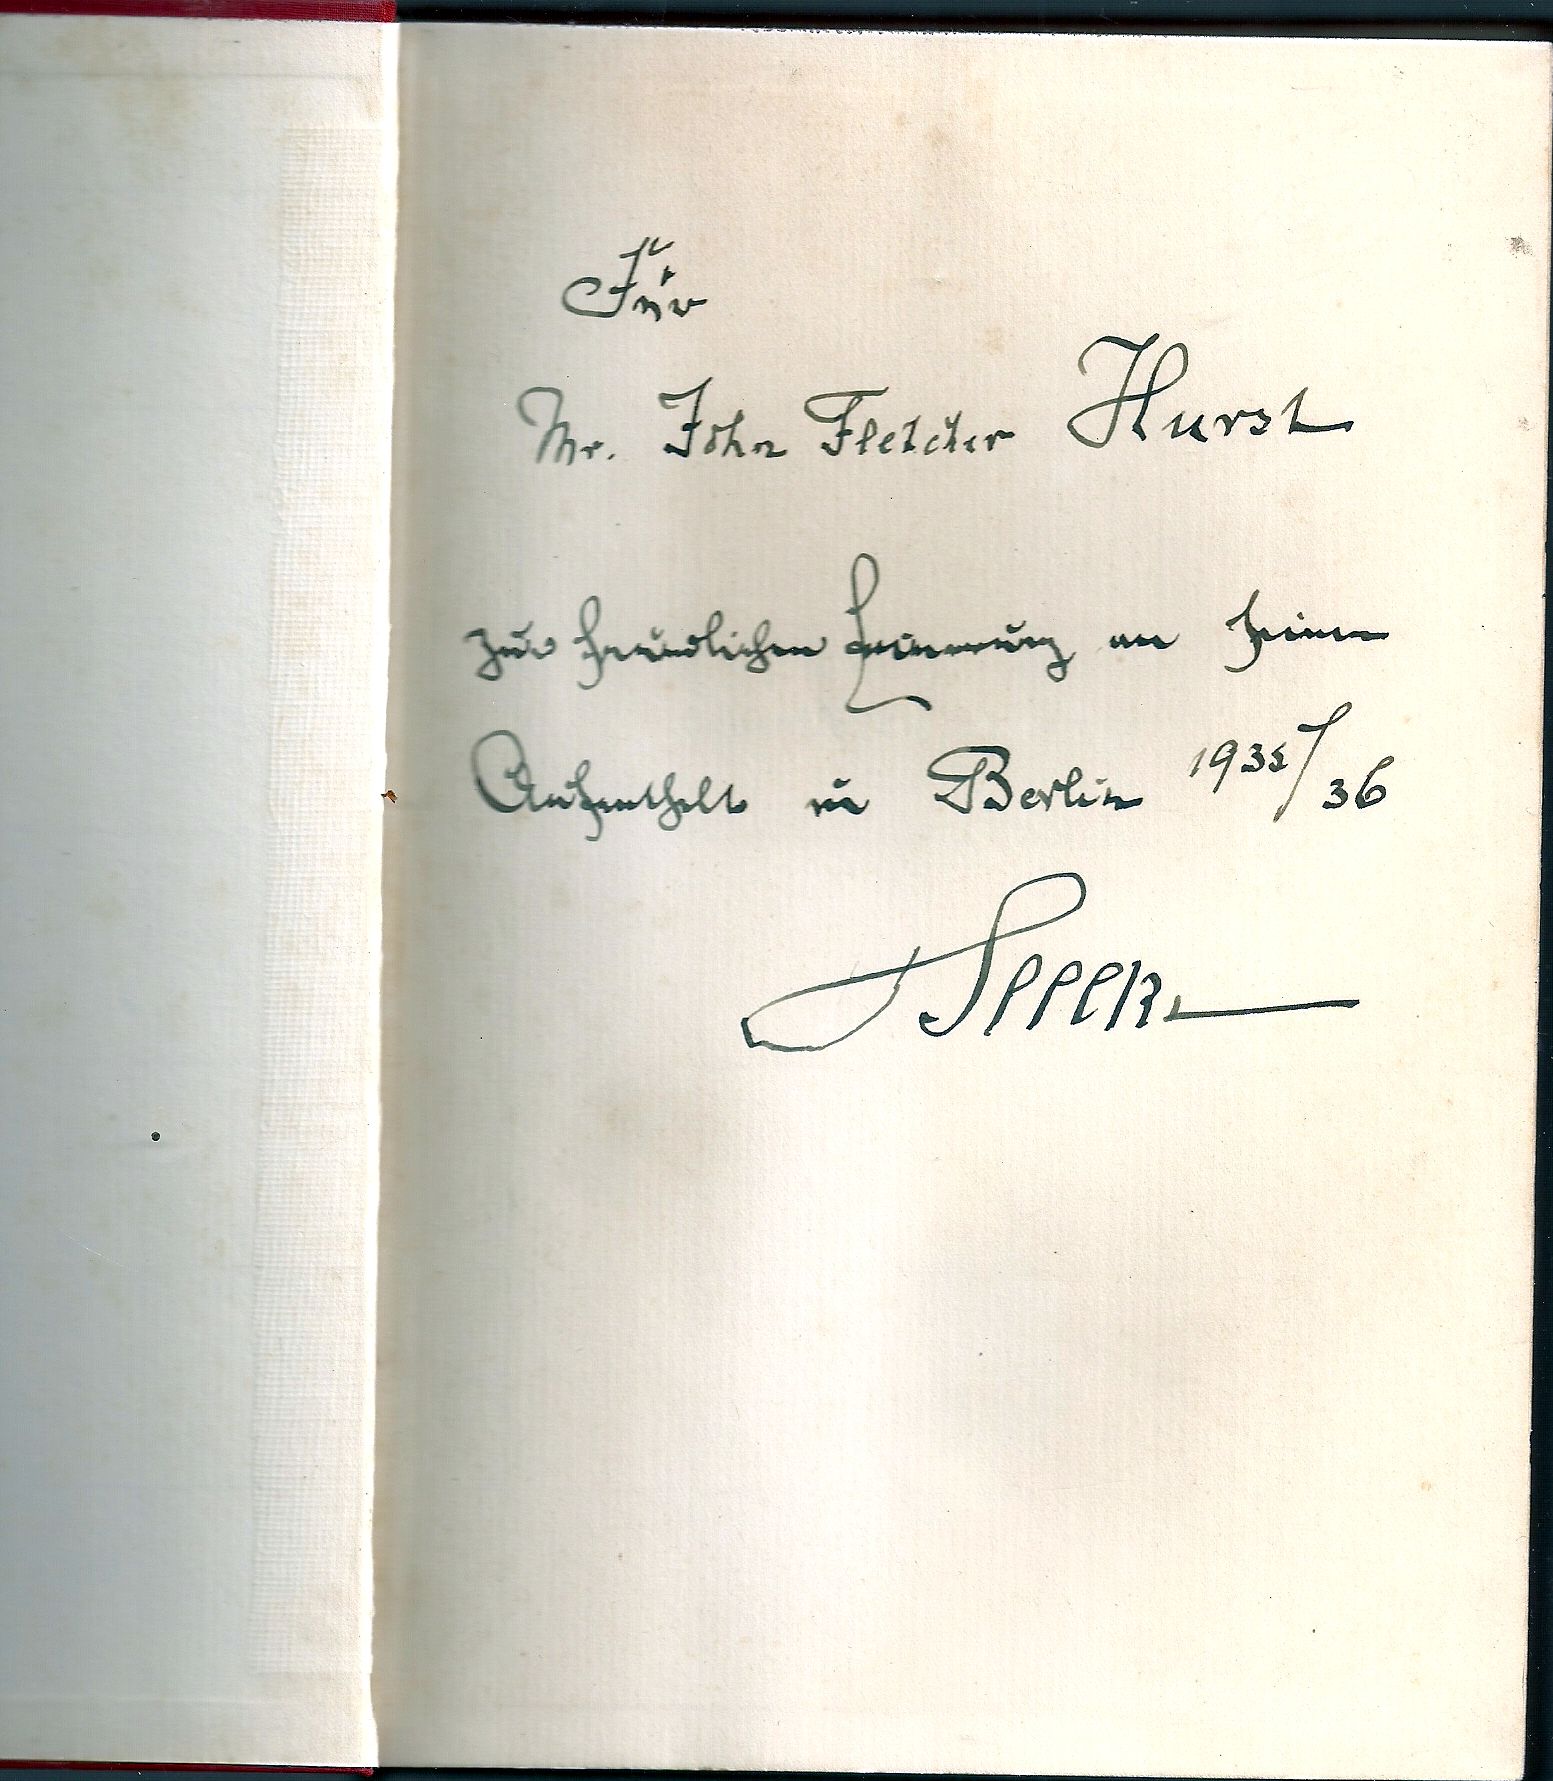 Für
Mr. John Fletcher Hurst
zur freundlichen Erinnerung an seinen
Aufenthalt in Berlin 1935/36